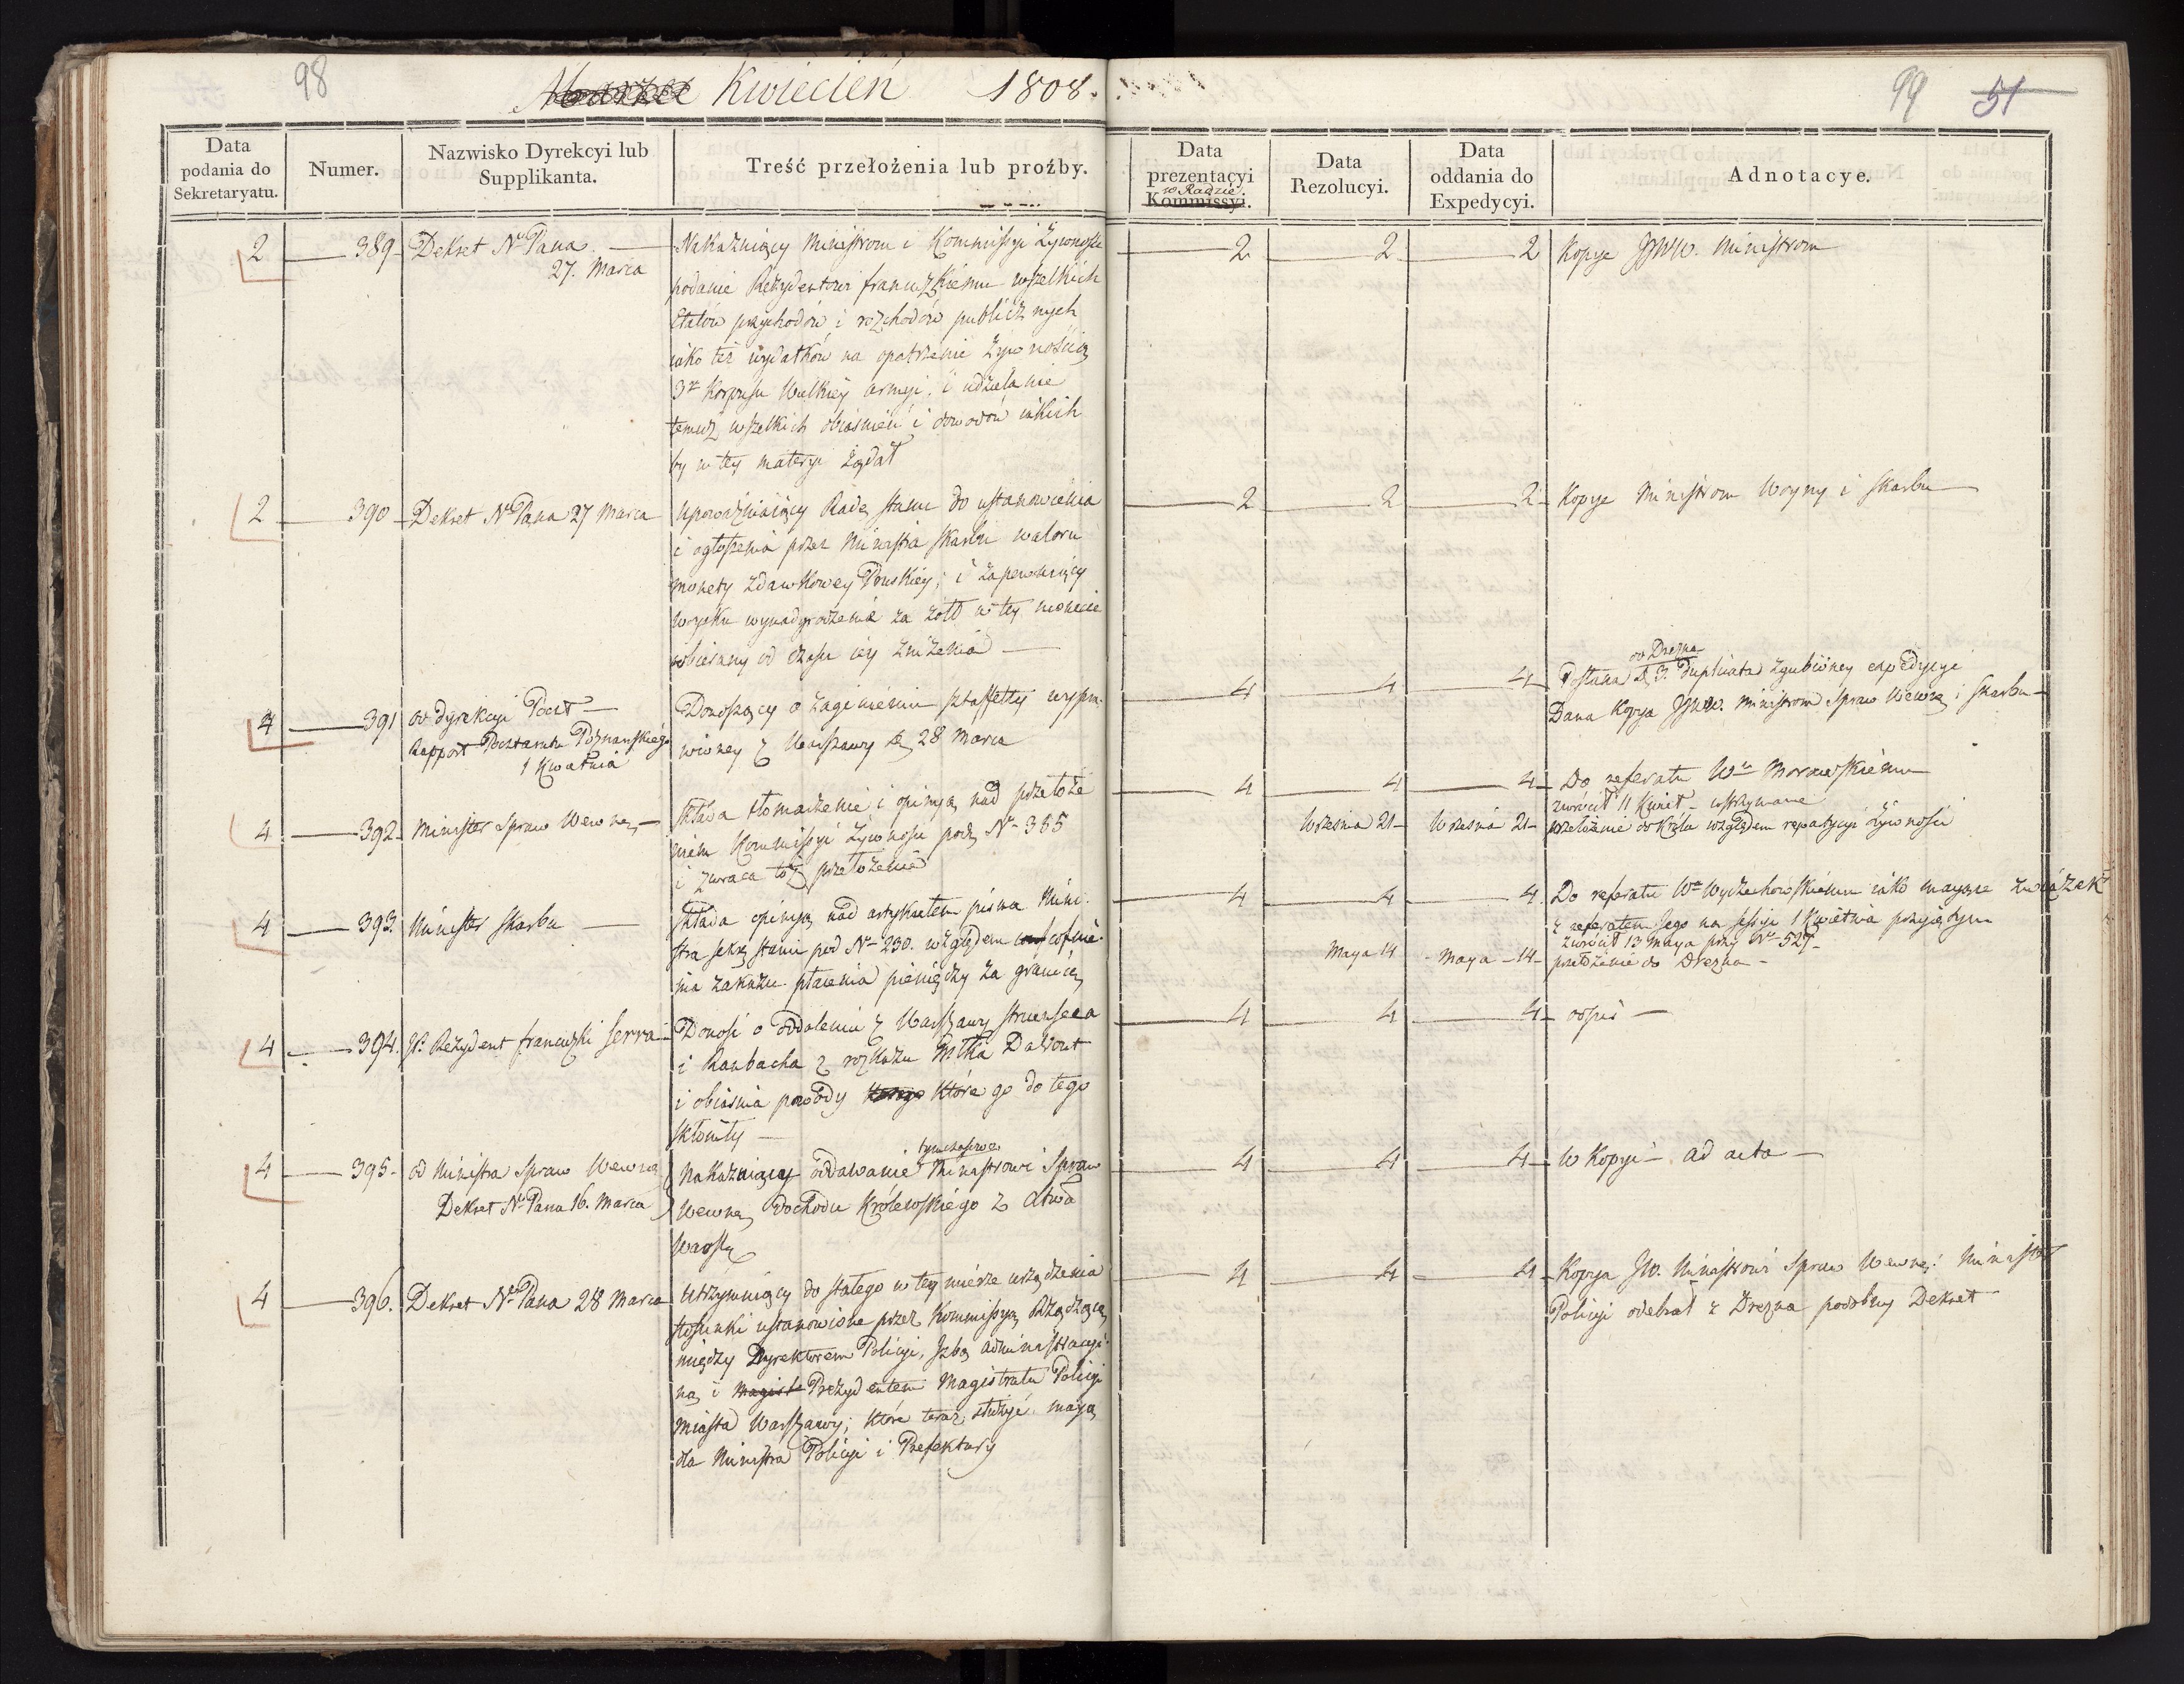 98
Kwiecień 1808.
99 51
Data podania do Sekretaryatu.
Numer.
Nazwisko Dyrekcyi lub Supplikanta.
Treść przełożenia lub proźby.
Data prezentacyi w Radzie Kommissyi.
Data Rezolucyi.
Data oddania do Expedycyi.
Adnotacye.
2 389 Dekret Nº Pana
27. Marca
Nakazuiący Ministrom i Kommissyi Żywności
podanie Rezydentowi francuzkiemu wszelkich
Etatów przychodów i rozchodów publicznych
iako też wydatków na opatrzenie żywnością
3º Korpusu Wielkiey armyi, i udzielanie
temuż wszelkich obiaśnień i dowodów iakich
by w tey materyi żądał
2 2 2 Kopye JJWW. Ministrom
2 390 Dekret Nº Pana 27 Marca
Upoważniaiący Radę stanu do ustanowienia
i ogłoszenia przez Ministra skarbu waloru
monety zdawkowey Pruskiey; i zapewniaiący
woysku wynadgrodzenie za żołd w tey monecie
pobierany od czasu iey zniżenia
2 2 2 Kopye Ministrom Woyny i skarbu
4 391 od dyrekcyi Poczt
Rapport Pocztamtu Poznańskiego
1 Kwietnia
Donoszący o zaginieniu sztaffetty wypra-
wioney z Warszawy d. 28 Marca
4 4 4
do Drezna
Posłana d. 3. duplikata zgubioney expedycyi
Dana Kopya JJWW. Ministrom Spraw Wewnę. i skarbu
4 392 Minister Spraw Wewnę.
składa tłomaczenie i opinyą nad przełoże
niem Kommissyi Żywności pod Nº 385
i zwraca toż przełożenie
4 4 4 Do referatu Wº Morawskiemu
zwrócił 11 Kwiet - wstrzymane
Września 21 Września 21 przełożenie do Króla względem repartycyi żywności
4 393. Minister skarbu
składa opinyą nad artykułem pisma Mini-
stra sekr. stanu pod Nº 230. względem cofnie-
nia zakazu płacenia pieniędzy za granicę
4 4 4 Do referatu Wº Wyczechowskiemu iako maiące związek
z referatem Jego na sessyi 1 Kwietnia przyiętym
zwrócił 13 Maya przy Nº 527
Maya 14 Maya 14 przełożenie do Drezna
4 394. JP. Rezydent francuzki Serra
Donosi o oddaleniu z Warszawy Struensea
i Raubacha z rozkazu Młka Davout
i obiaśnia powody które go do tego
skłoniły
4 4 4 odpis
4 395 od Ministra Spraw Wewnę.
Dekret Nº Pana 16. Marca
tymczasowe
Nakazuiący oddawanie Ministrowi Spraw
Wewnę. dochodu Królewskiego z
4 4 4 w Kopyi - ad acta
4 396. Dekret Nº Pana 28 Marca
Utrzymuiący do stałego w tey mierze urządzenia
stosunki ustanowione przez Kommissyą Rządzącą
między Dyrektorem Policyi, Izbą administracyi-
ną i Prezydentem Magistratu Policyi
miasta Warszawy; które teraz służyć maią
dla Ministra Policyi i Prefektury
4 4 4 Kopya JW. Ministrowi Spraw Wewnę. Minister
Policyi odebrał z Drezna podobny Dekret